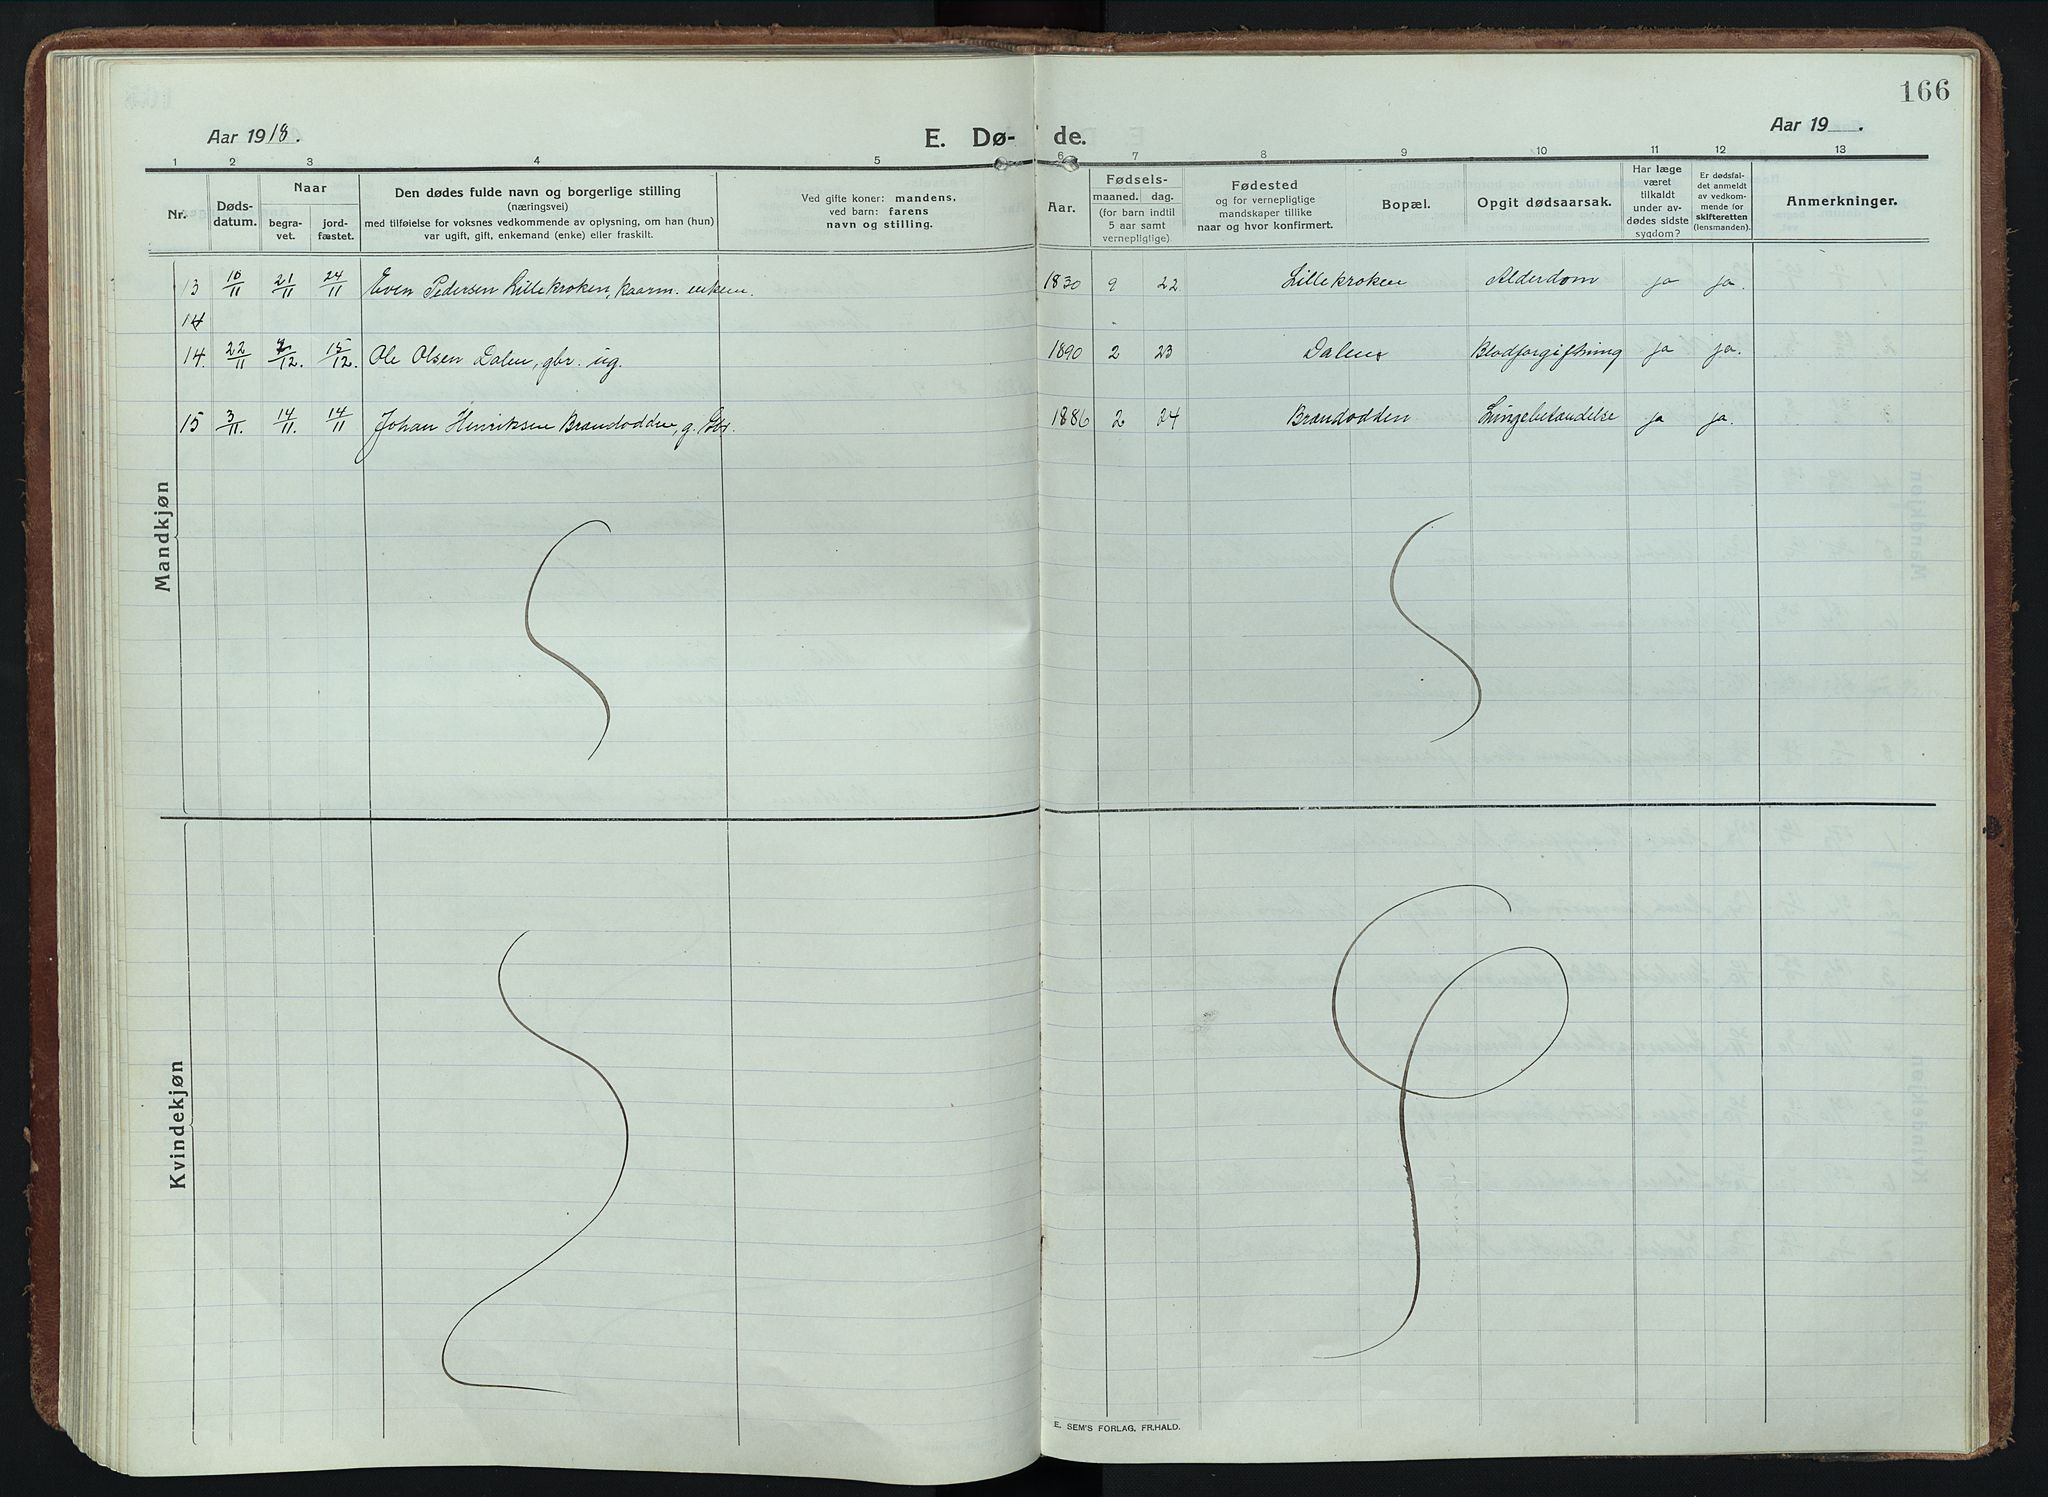 166
Aar 1918.
E. Dø- de.
Aar 19 .
1 2 3 4 5 6 7 8 9 10 11 12 13
Nr.
Døds-
datum.
Naar
begra-
vet.
jord-
fæstet.
Den dødes fulde navn og borgerlige stilling
(næringsvei)
med tilføielse for voksnes vedkommende av oplysning, om han (hun)
var ugift, gift, enkemand (enke) eller fraskilt.
Ved gifte koner: mandens,
ved barn: farens
navn og stilling.
Aar.
Fødsels-
maaned. dag.
(for barn indtil
5 aar samt
vernepligtige).
Fødested
og for vernepligtige
mandskaper tillike
naar og hvor konfirmert.
Bopæl.
Opgit dødsaarsak.
Har læge
været
tilkaldt
under av-
dødes sidste
sygdom?
Er dødsfal-
det anmeldt
av vedkom-
mende for
skifteretten
(lensmanden).
Anmerkninger.
Mandkjøn
13 10/11 21/11 24/11 Even Pedersen Lillekroken, kaarm. enkem. 1830 9 22 Lillekroken Alderdom ja ja.
14
14. 22/11 7/12. 15/12. Ole Olsen Dalen, gbr. ug. 1890 2 23 Dalen Blodforgiftning ja ja.
15 3/11. 14/11. 14/11 Johan Henriksen Brandodden, g. Gbr. 1886 2 24 Brandodden Lungebetændelse ja ja.
Kvindekjøn
E. SEM'S FORLAG, FR.HALD.